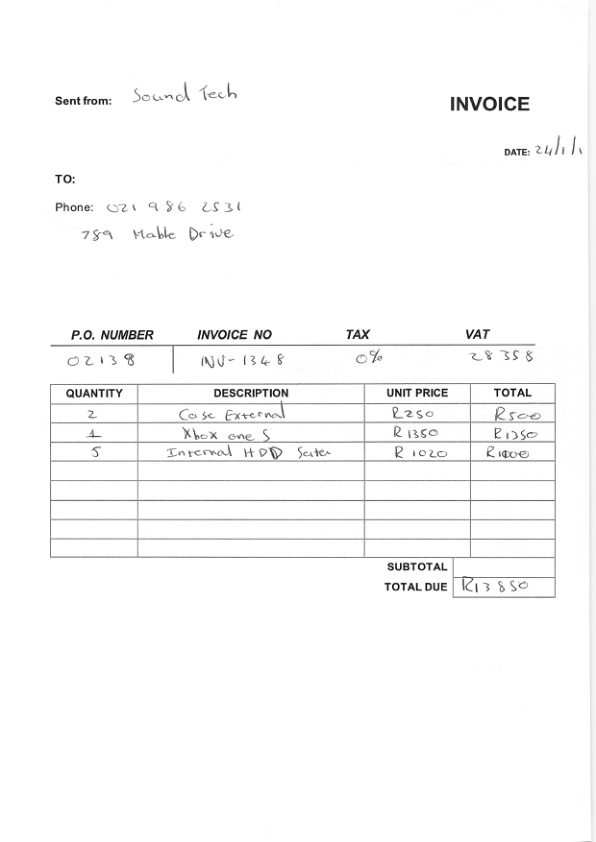 Sent from: Sound Tech
INVOICE
DATE: 24/1/1
TO:
Phone: 021 986 2531
789 Mable Drive
P.O. NUMBER INVOICE NO TAX VAT
02138 INV-1348 0% 28358
QUANTITY DESCRIPTION UNIT PRICE TOTAL
2 Case External R250 R500
1 Xbox one S R1350 R1350
5 Internal HDD R1020
SUBTOTAL
TOTAL DUE R13850